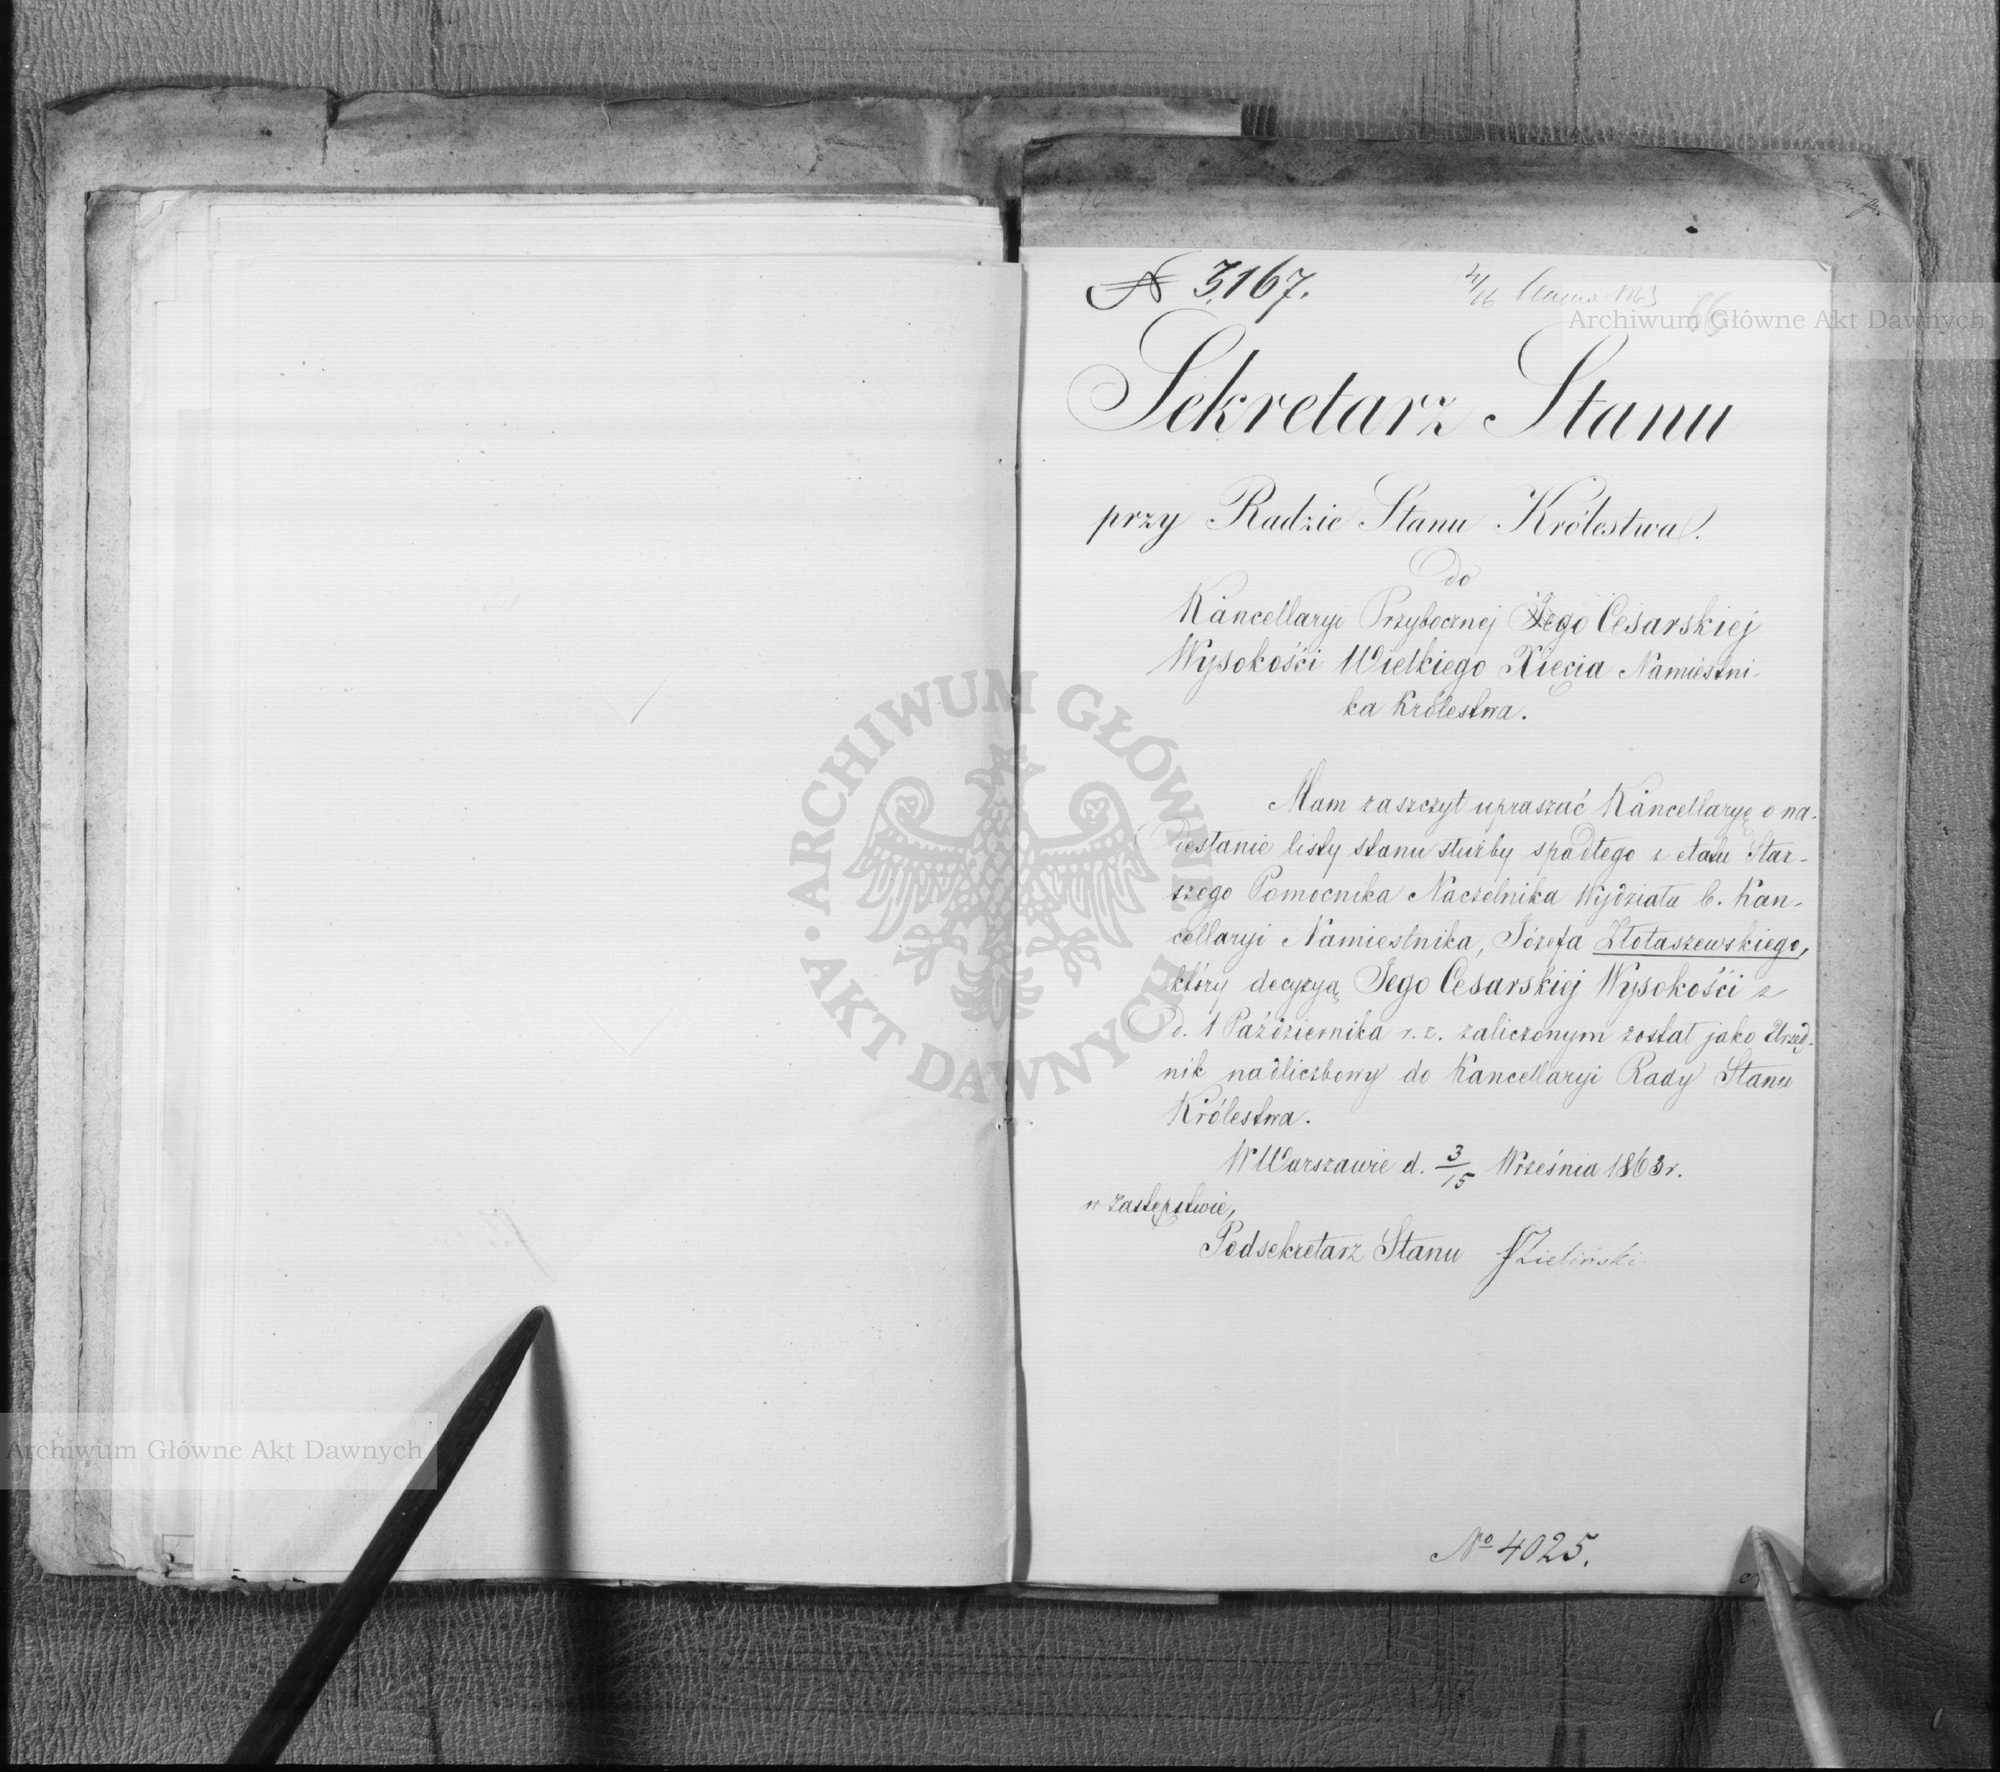 № 3,167.
4/16
66
Sekretarz Stanu
przy Radzie Stanu Królestwa.
do
Kancellaryi Przybocznej Jego Cesarskiej
Wysokości Wielkiego Xięcia Namiestni-
ka Królestwa.
Mam zaszczyt upraszać Kancellaryę o na-
desłanie listy stanu służby spadłego z etatu Star-
szego Pomocnika Naczelnika Wydziału b. Kan-
cellaryi Namiestnika, Józefa Złotaszewskiego,
który decyzyą Jego Cesarskiej Wysokości z
d. 1 Października r. z. zaliczonym został jako Urzęd-
nik nadliczbowy do Kancellaryi Rady Stanu
Królestwa.
W Warszawie d. 3/15 Września 1863 r.
w zastępstwie,
Podsekretarz Stanu Zieliński
№ 4025.
Archiwum Główne Akt Dawnych
ARCHIWUM GŁÓWNE AKT DAWNYCH
Archiwum Główne Akt Dawnych